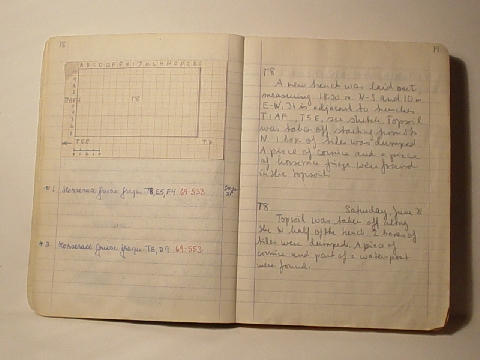 18
A B C D E F G H I J K L M N O P Q R S
T8
T5E
*1. Horserace frieze fragm. T8, E5, F4 69-553
*2. Horserace frieze fragm. T8, D9 69-553
19
T8
A new trench was laid out
measuring 18.50 m N-S and 10 m
E-W. It is adjacent to trenches
T1AF, T5E, see sketch. Topsoil
was taken off starting from the
N. 1 box of tiles was dumped.
A piece of cornice and a piece
of horserace frieze were found
in the topsoil.
T8 Saturday, June 21
Topsoil was taken off along
the W half of the trench. 2 boxes of
tiles were dumped. A piece of
cornice and part of a waterspout
were found.